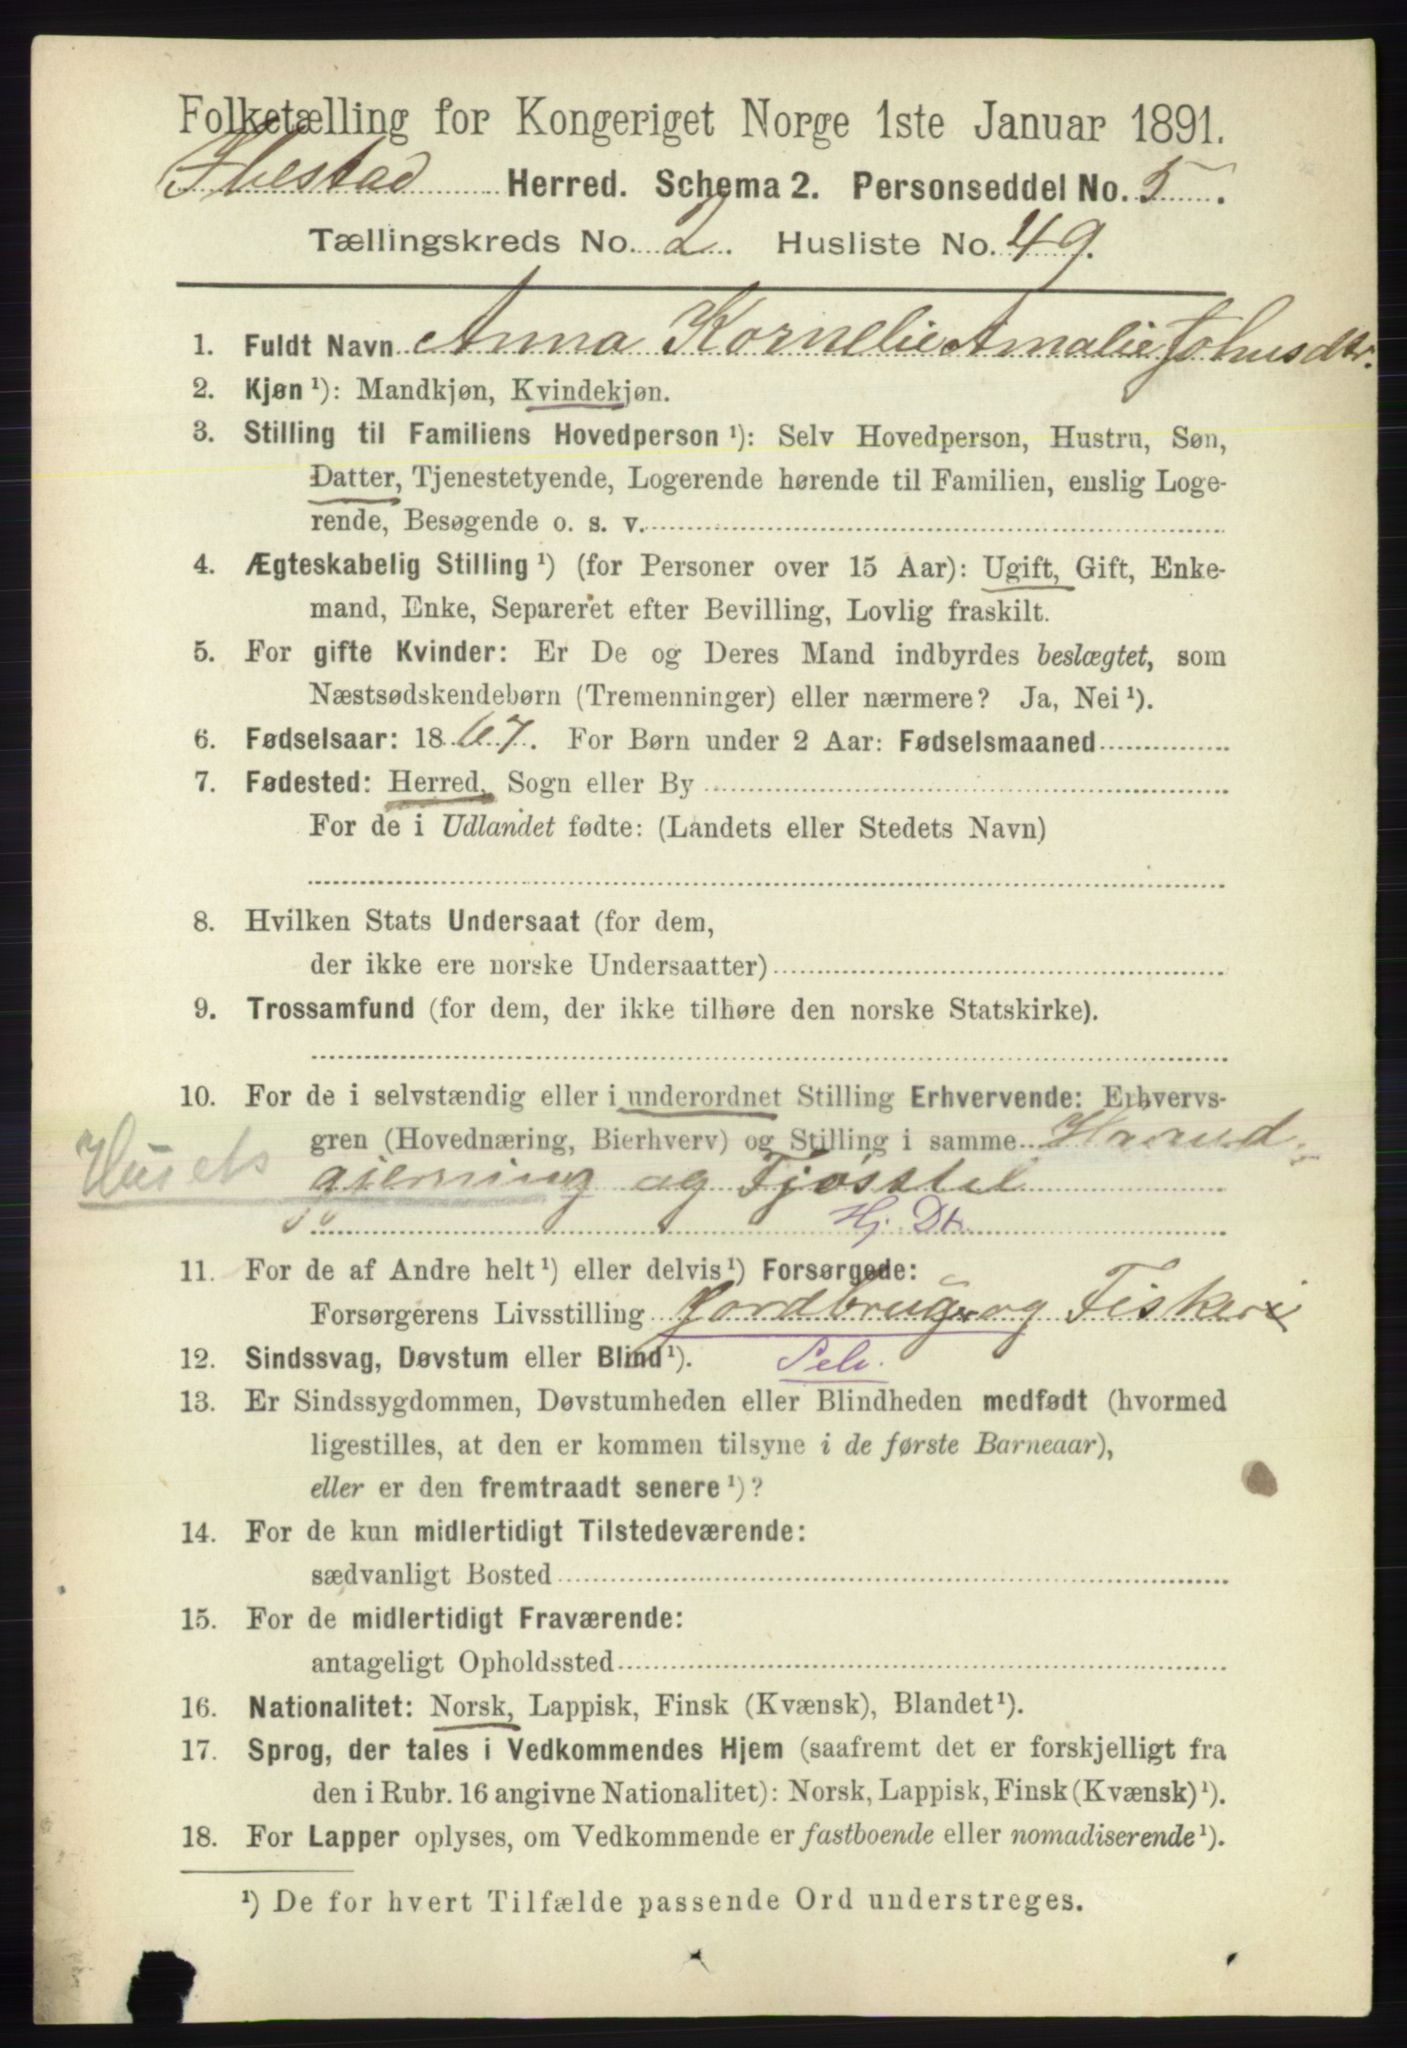 Folketælling for Kongeriget Norge 1ste Januar 1891.
Ibestad Herred. Schema 2. Personseddel No. 5.
Tællingskreds No. 2. Husliste No. 49.
1. Fuldt Navn Anna Kornelie Amalie Johnsdtr.
2. Kjøn ¹): Mandkjøn, Kvindekjøn.
3. Stilling til Familiens Hovedperson ¹): Selv Hovedperson, Hustru, Søn,
Datter, Tjenestetyende, Logerende hørende til Familien, enslig Loge-
rende, Besøgende o. s. v.
4. Ægteskabelig Stilling ¹) (for Personer over 15 Aar): Ugift, Gift, Enke-
mand, Enke, Separeret efter Bevilling, Lovlig fraskilt.
5. For gifte Kvinder: Er De og Deres Mand indbyrdes beslægtet, som
Næstsødskendebørn (Tremenninger) eller nærmere? Ja, Nei ¹).
6. Fødselsaar: 1867. For Børn under 2 Aar: Fødselsmaaned
7. Fødested: Herred, Sogn eller By
For de i Udlandet fødte: (Landets eller Stedets Navn)
8. Hvilken Stats Undersaat (for dem,
der ikke ere norske Undersaatter)
9. Trossamfund (for dem, der ikke tilhøre den norske Statskirke).
10. For de i selvstændig eller i underordnet Stilling Erhvervende: Erhvervs-
gren (Hovednæring, Bierhverv) og Stilling i samme Haand-
Husets gjerning og Fjøsstel
Hj. Dt.
11. For de af Andre helt ¹) eller delvis ¹) Forsørgede:
Forsørgerens Livsstilling Jordbruger og Fiskeri
12. Sindssvag, Døvstum eller Blind ¹). Selv.
13. Er Sindssygdommen, Døvstumheden eller Blindheden medfødt (hvormed
ligestilles, at den er kommen tilsyne i de første Barneaar),
eller er den fremtraadt senere ¹)?
14. For de kun midlertidigt Tilstedeværende:
sædvanligt Bosted
15. For de midlertidigt Fraværende:
antageligt Opholdssted
16. Nationalitet: Norsk, Lappisk, Finsk (Kvænsk), Blandet ¹).
17. Sprog, der tales i Vedkommendes Hjem (saafremt det er forskjelligt fra
den i Rubr. 16 angivne Nationalitet): Norsk, Lappisk, Finsk (Kvænsk) ¹).
18. For Lapper oplyses, om Vedkommende er fastboende eller nomadiserende ¹).
¹) De for hvert Tilfælde passende Ord understreges.